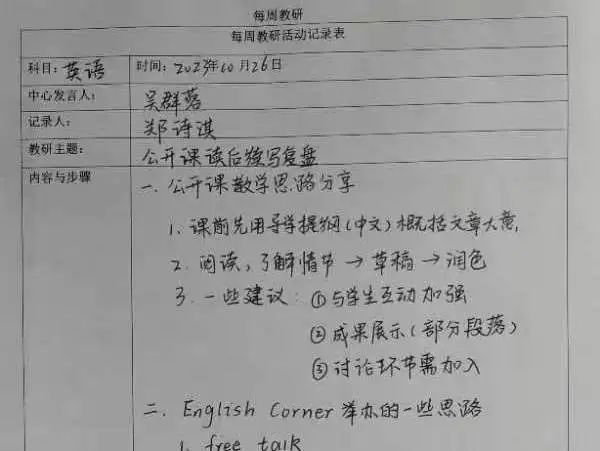 每周教研
每周教研活动记录表
科目：英语 时间：2023年10月26日
中心发言人： 吴群落
记录人： 郑诗淇
教研主题： 公开课读后续写复盘
内容与步骤 一、公开课教学思路分享
1. 课前先用导学提纲（中文）概括文章大意，
2. 阅读，了解情节→草稿→润色
3. 一些建议：①与学生互动加强
②成果展示（部分段落）
③讨论环节需加入
二、English Corner 举办的一些思路
1. free talk